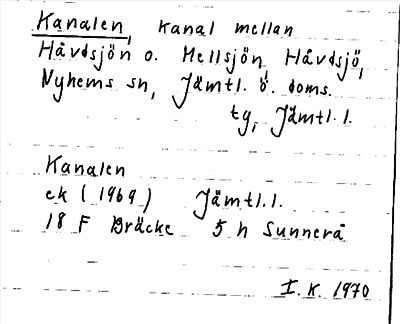 Kanalen, kanal mellan
Håvdsjön o. Mellsjön, Håvdsjö,
Nyhems sn, Jämtl. ö. doms.
tg, Jämtl. l.
Kanalen
ek (1969) Jämtl. l.
18 F Bräcke 5 h Sunnerå
I. K. 1970